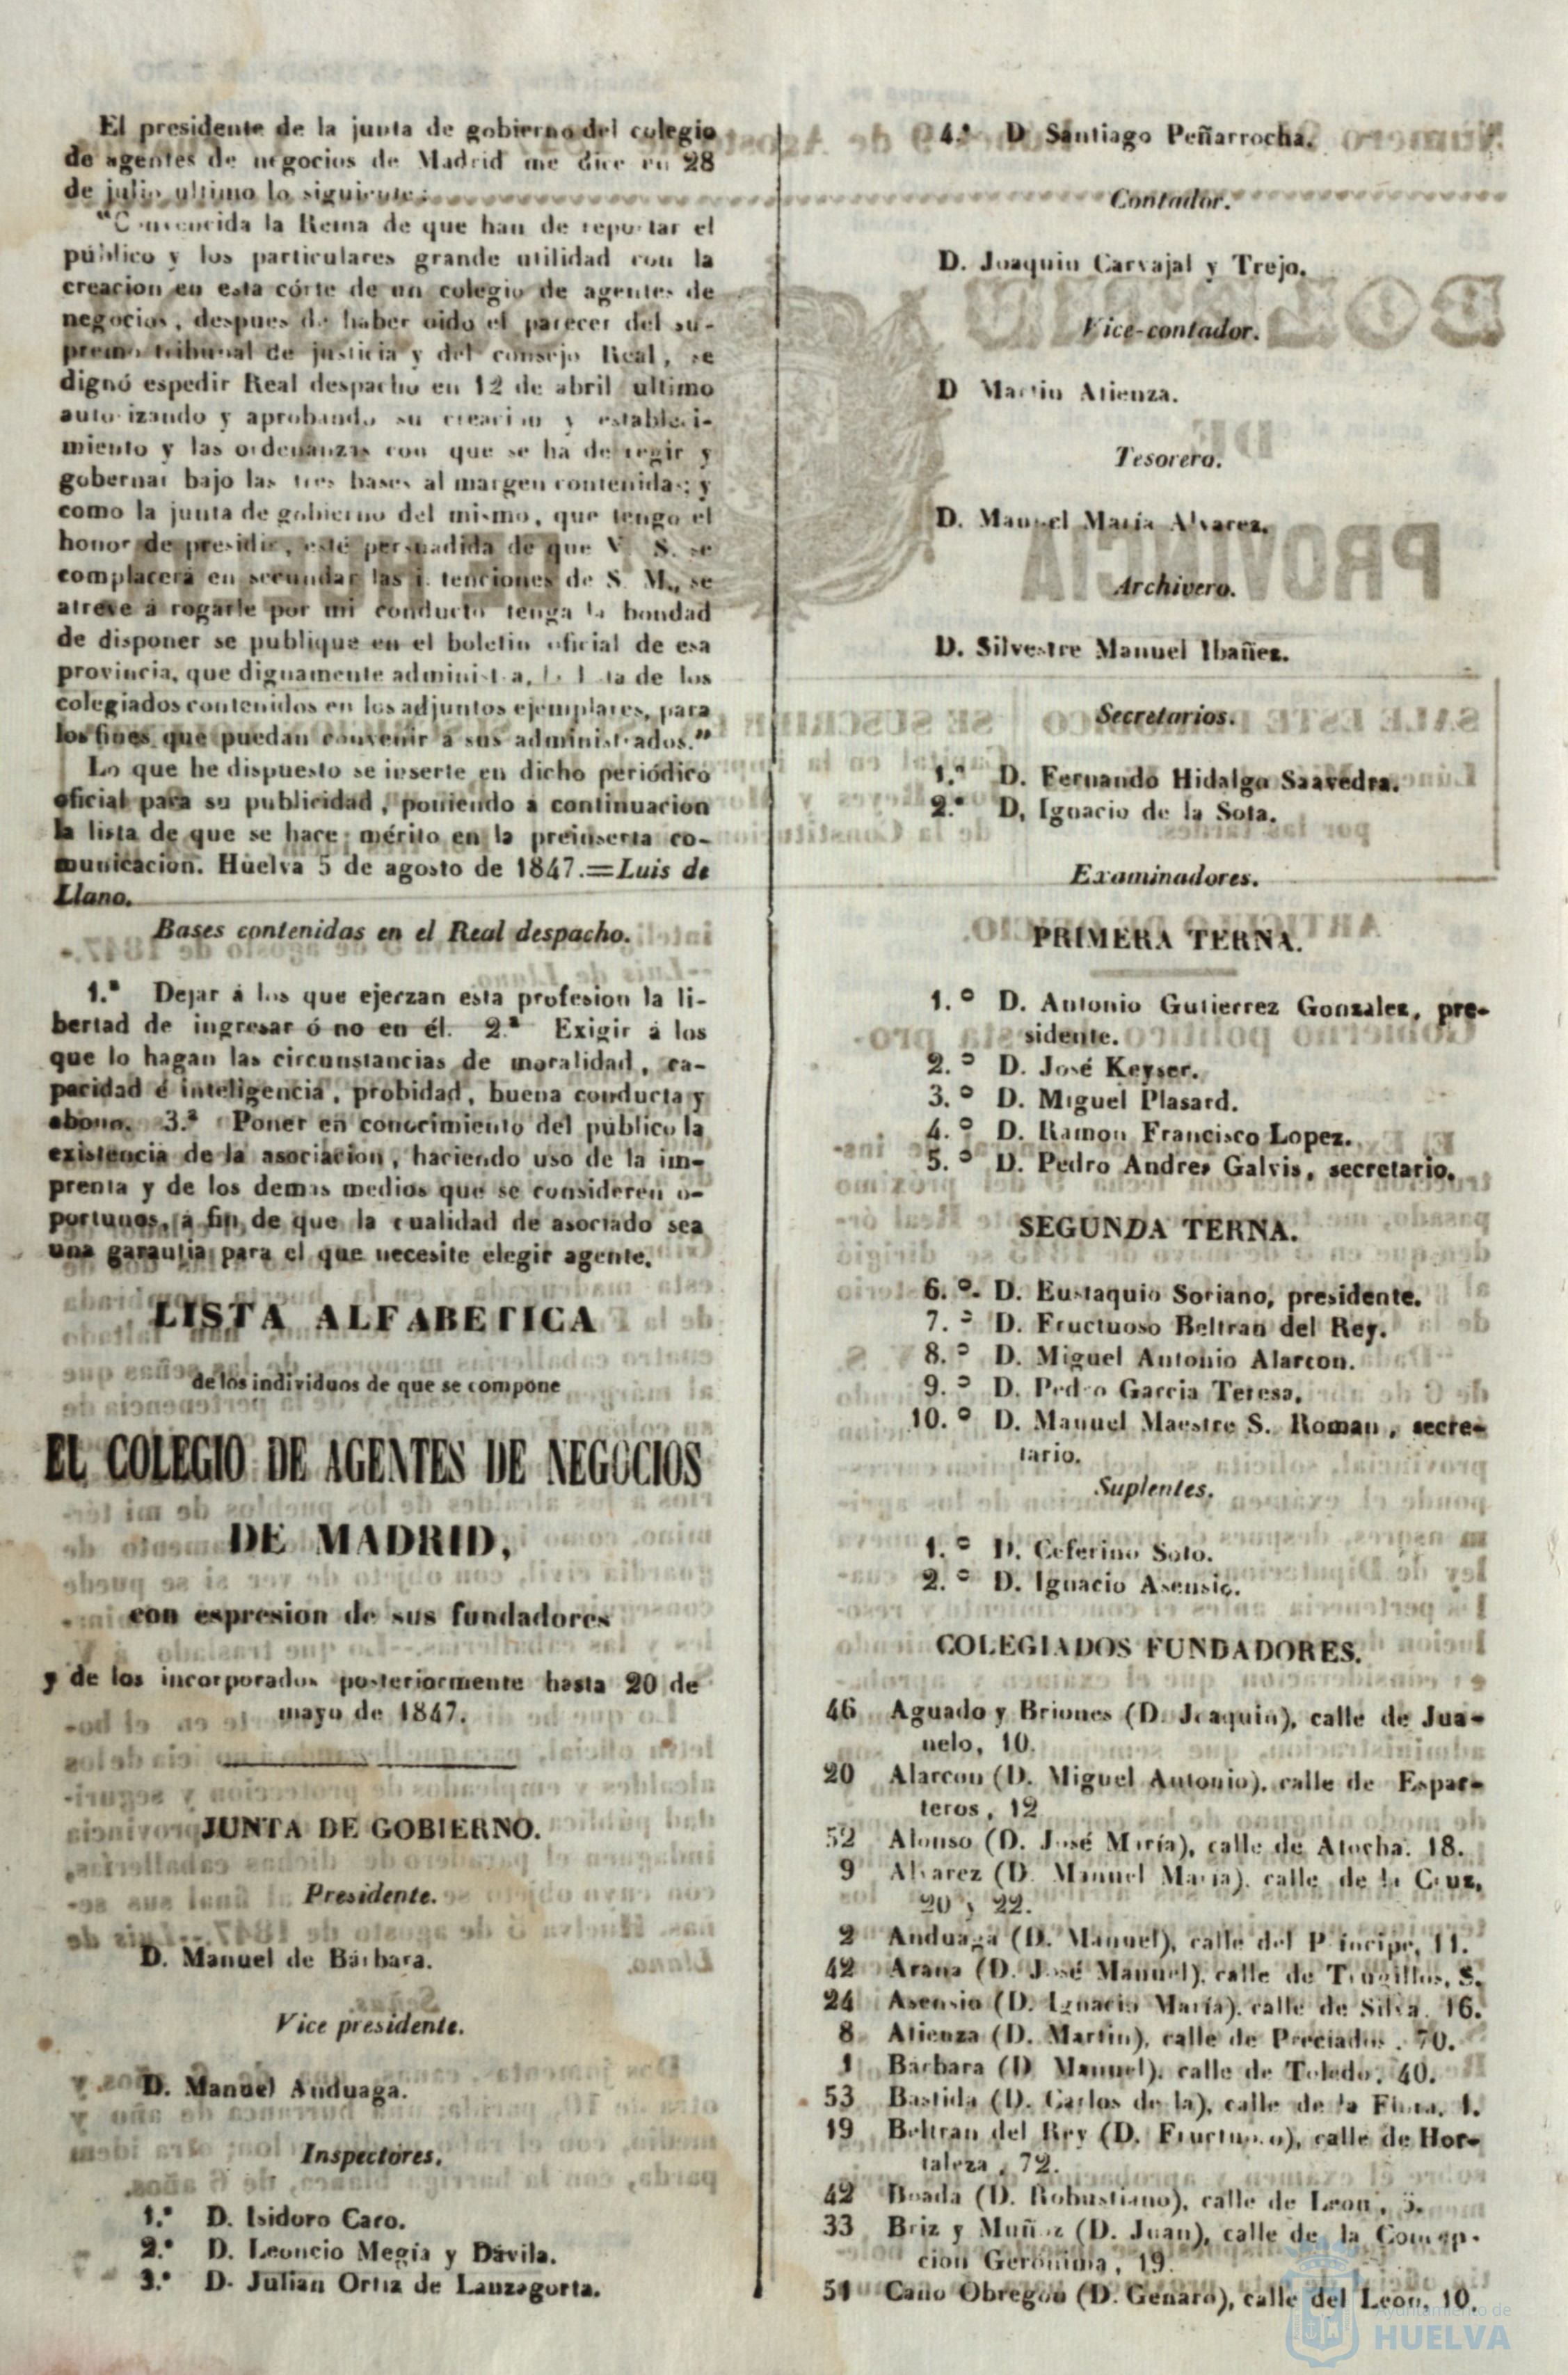 El presidente de la junta de gobierno del colegio
de agentes de negocios de Madrid me dice en 28
de julio ultimo lo siguiente:
"Convencida la Reina de que han de reportar el
público y los particulares grande utilidad con la
creacion en esta córte de un colegio de agentes de
negocios, despues de haber oido el parecer del su-
premo tribunal de justicia y del consejo Real, se
dignó espedir Real despacho en 12 de abril ultimo
autorizando y aprobando su creacion y estableci-
miento y las ordenanzas con que se ha de regir y
gobernar bajo las tres bases al margen contenidas; y
como la junta de gobierno del mismo, que tengo el
honor de presidir, esté persuadida de que V. S. se
complacerá en secundar las intenciones de S. M., se
atreve á rogarle por mi conducto tenga la bondad
de disponer se publique en el boletin oficial de esa
provincia, que dignamente administra, la lista de los
colegiados contenidos en los adjuntos ejemplares, para
los fines que puedan convenir á sus administrados."
Lo que he dispuesto se inserte en dicho periódico
oficial para su publicidad, poniendo á continuacion
la lista de que se hace mérito en la preinserta co-
municacion. Huelva 5 de agosto de 1847.=Luis de
Llano.
Bases contenidas en el Real despacho.
1.ª Dejar á los que ejerzan esta profesion la li-
bertad de ingresar ó no en él. 2.ª Exigir á los
que lo hagan las circunstancias de moralidad, ca-
pacidad é inteligencia, probidad, buena conducta y
abono. 3.ª Poner en conocimiento del público la
existencia de la asociacion, haciendo uso de la im-
prenta y de los demas medios que se consideren o-
portunos, á fin de que la cualidad de asociado sea
una garantia para el que necesite elegir agente.
LISTA ALFABETICA
de los individuos de que se compone
EL COLEGIO DE AGENTES DE NEGOCIOS
DE MADRID,
con espresion de sus fundadores
y de los incorporados posteriormente hasta 20 de
mayo de 1847.
JUNTA DE GOBIERNO.
Presidente.
D. Manuel de Bárbara.
Vice presidente.
D. Manuel Anduaga.
Inspectores.
1.º D. Isidoro Caro.
2.º D. Leoncio Megía y Dávila.
3.º D. Julian Ortiz de Lanzagorta.
4.º D Santiago Peñarrocha.
Contador.
D. Joaquin Carvajal y Trejo.
Vice-contador.
D Martin Atienza.
Tesorero.
D. Manuel Maria Alvarez.
Archivero.
D. Silvestre Manuel Ibañez.
Secretarios.
1.º D. Fernando Hidalgo Saavedra.
2.º D, Ignacio de la Sota.
Examinadores.
PRIMERA TERNA.
1.º D. Antonio Gutierrez Gonzalez, pre-
sidente.
2.º D. José Keyser.
3.º D. Miguel Plasard.
4.º D. Ramon Francisco Lopez.
5.º D. Pedro Andres Galvis, secretario.
SEGUNDA TERNA.
6.º. D. Eustaquio Soriano, presidente.
7.º D. Fructuoso Beltran del Rey.
8.º D. Miguel Antonio Alarcon.
9.º D. Pedro Garcia Teresa.
10.º D. Manuel Maestre S. Roman, secre-
tario.
Suplentes.
1.º D. Ceferino Soto.
2.º D. Ignacio Asensio.
COLEGIADOS FUNDADORES.
46 Aguado y Briones (D. Joaquin), calle de Jua-
nelo, 10.
20 Alarcon (D. Miguel Antonio), calle de Espar-
teros, 12
52 Alonso (D. José María), calle de Atocha. 18.
9 Alvarez (D. Manuel Maria). calle de la Cruz,
20 y 22.
2 Anduaga (D. Manuel), calle del Principe, 11.
42 Arana (D. José Manuel), calle de Trugillos, S.
24 Asensio (D. Ignacio María). calle de Silva. 16.
8 Atienza (D. Martin), calle de Preciados. 70.
1 Bárbara (D Manuel). calle de Toledo, 40.
53 Bastida (D. Carlos de la), calle de la Flora, 1.
19 Beltran del Rey (D. Fructuoso), calle de Hor-
taleza, 72.
42 Boada (D. Robustiano), calle de Leon, 5.
33 Briz y Muñoz (D. Juan), calle de la Concep-
cion Gerónima, 19.
51 Cano Obregon (D. Genaro), calle del Leon, 10.
Ayuntamiento de
HUELVA